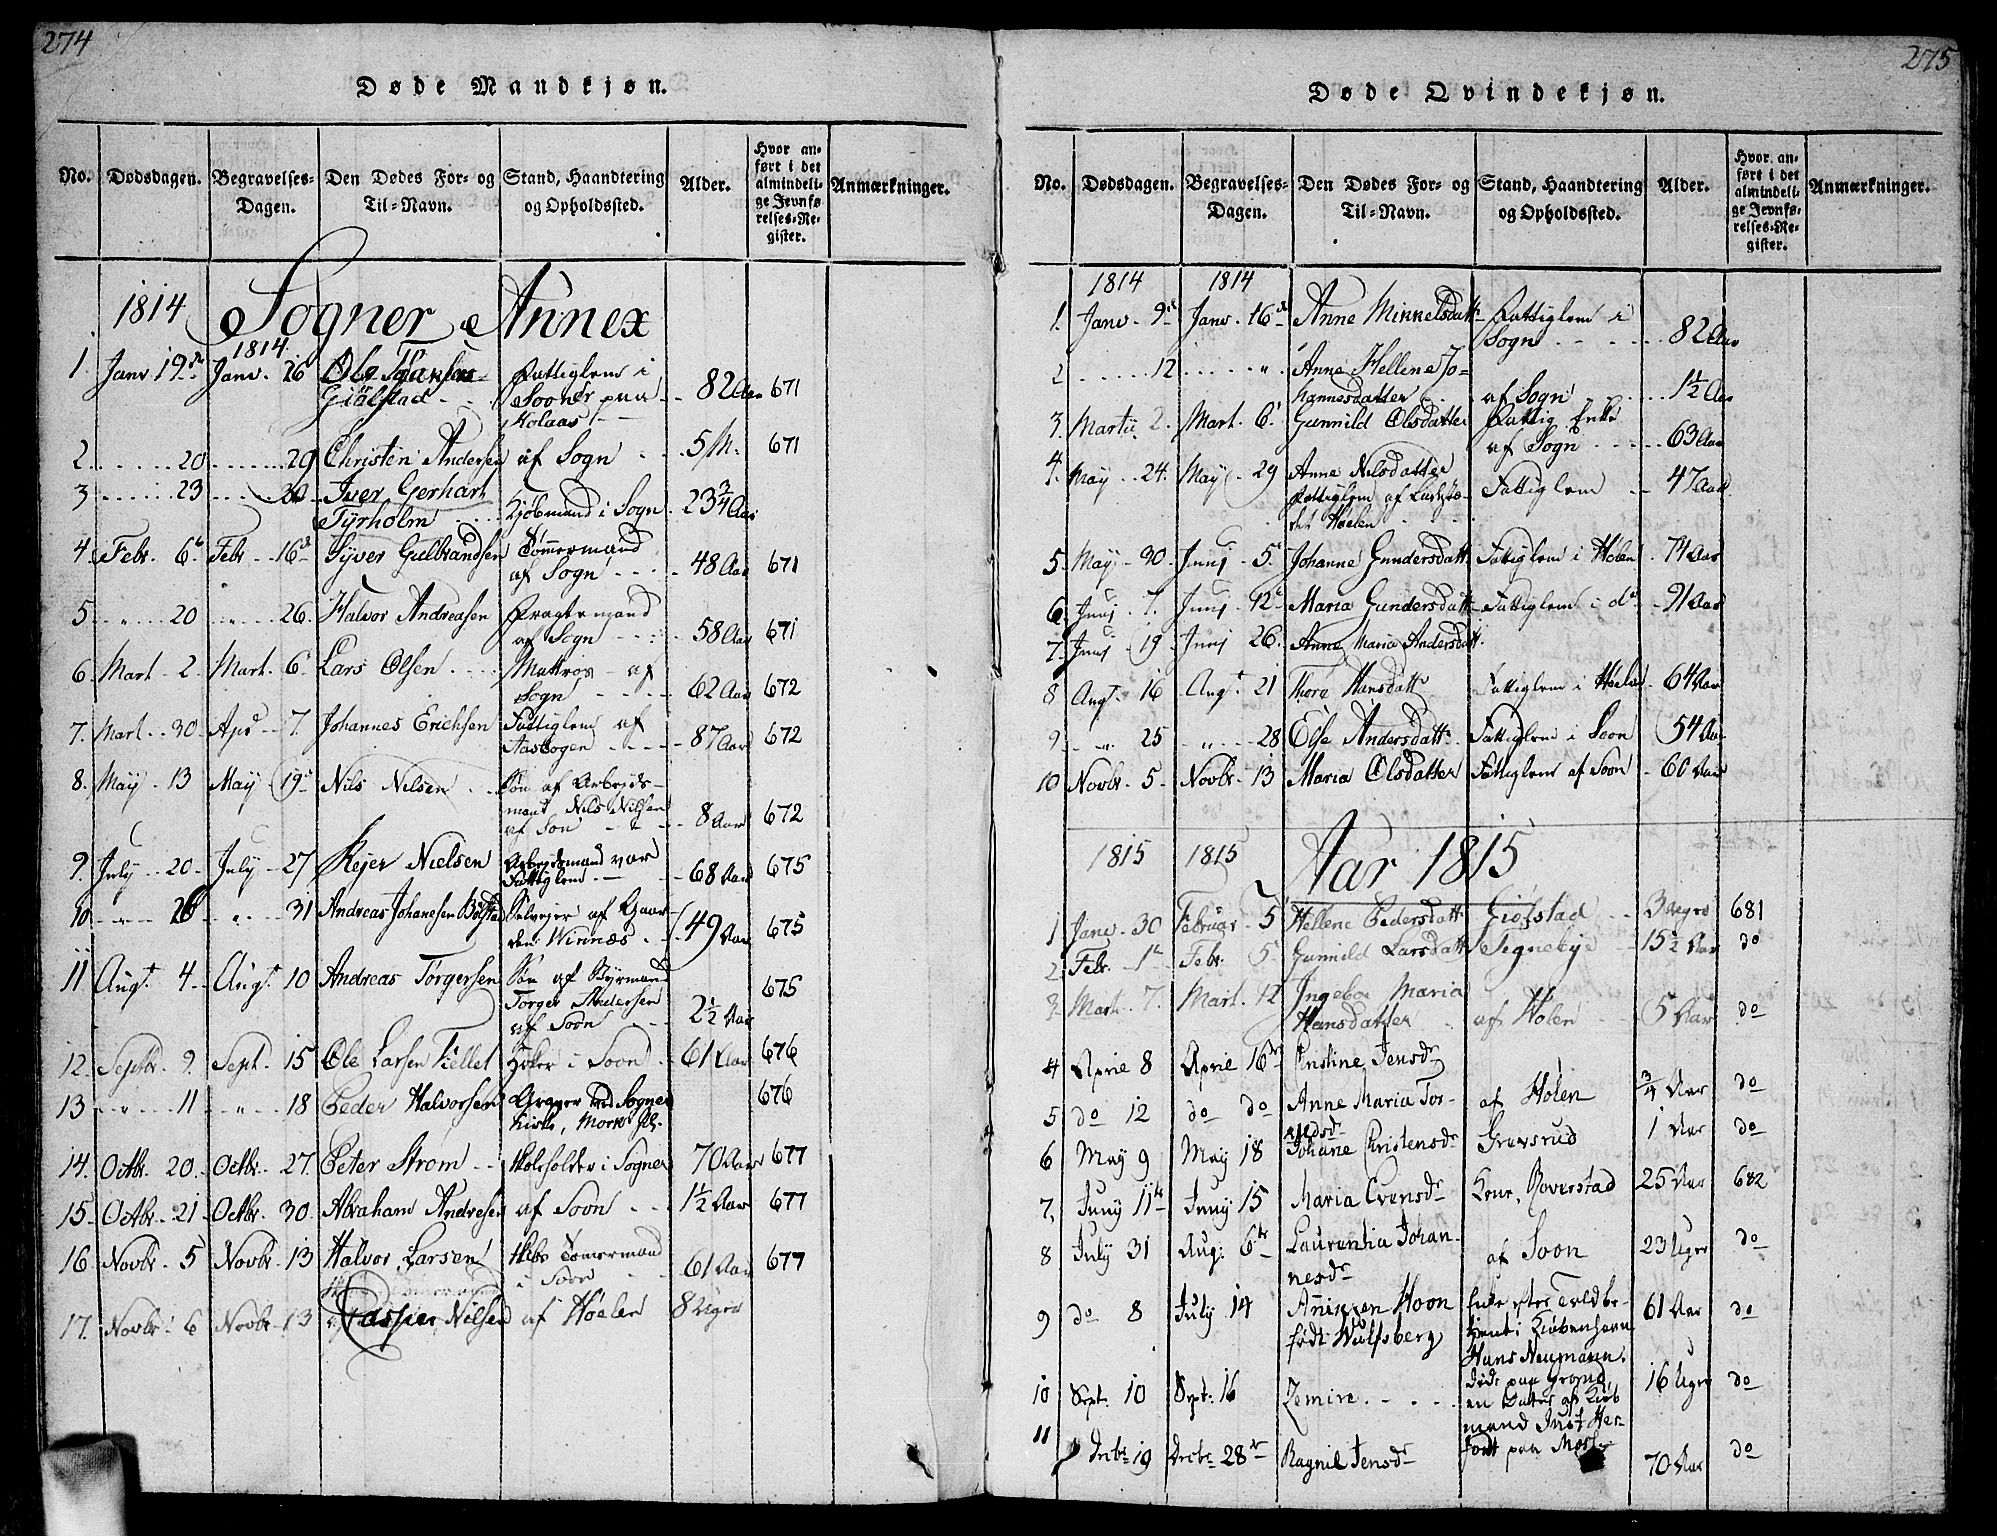 274
Døde Mandkjøn.
No. Dødsdagen. Begravelses-Dagen. Den Dødes For- og Til-Navn. Stand, Haandtering og Opholdssted. Alder. Hvor anført i det almindelige Jevnførelses-Register. Anmærkninger.
1814 Sogner Annex
1814
1. Janv 19de Janv. 26 Ole Hansen Fattiglem i 82 Aar 671
Giølstad Sooner paa
Kolaas
2. 20 29 Christen Andersen af Sogn 5 M. 671
3 23 Iver Gerhart
Tyrholm Kjøbmand i Sogn 23 3/4 Aar
4 Febr. 6 Febr 16d Syver Gulbrandsen Tømmermand
af Sogn 48 Aar 671
5 " 20 " 26. Halvor Andreasen Fragtemand
af Sogn 58 Aar 671
6 Mart 2 Mart. 6 Lars Olsen Mattros af
Sogn 62 Aar 672
7. Mart. 30 Apr 7. Johannes Erichsen Fattiglem af
Aasbogen 87 Aar 672
8. May 13 May 19 Nils Nilsen Søn af Arbejds-
mand Nils Nilsen
af Son 8 Aar 672
9. July 20 July 27 Rejer Nielsen Arbejdsmand var
Fattiglem 68 Aar 675
10 " 26 " 31 Andreas Johanesen Selvejer af Gaar-
den Winnæs 49 Aar 675
11 Augt. 4 Augt. 10 Andreas Torgersen Søn af Styrmand
Torger Andersen
af Soon 2 1/2 Aar 675
12. Septbr. 9. Sept. 15 Ole Larsen Fiellet Høker i Soon 61 Aar 676
13 " 11 " 18 Peder Halvorsen Graver ved Sogner
Kirke, 676
14. Octbr. 20. Octbr. 27. Peter Strøm Huusholder i Sogner 70 Aar 677
15. Octbr. 21 Octbr. 30 Abraham Andresen af Soon 1 1/2 Aar 677
16 Novbr. 5 Novbr. 13 Halvor Larsen Tømermand
i Soon 61 Aar 677
17. Novbr. 6 Novbr. 13 Casper Nilsen af Høelen 8 Uger
275
Døde Qvindekjøn.
No. Dødsdagen. Begravelses-Dagen. Den Dødes For- og Til-Navn. Stand, Haandtering og Opholdssted. Alder. Hvor anført i det almindelige Jevnførelses-Register. Anmærkninger.
1814 1814
1. Janv. 9d Janv. 16d Anne Minnelsdatt Fattiglem i
Sogn 82 Aar
2 12 " Anne Hellene Jo-
hannesdatter af Sogn 1 1/2 Aar
3. Martii 2. Mart. 6 Gunnild Olsdatter Fattig Enke
af Sogn 63 Aar
4. May 24. May 29 Anne Nilsdatter Fattiglem 47 Aar
Fattiglem af
det Høelen
5. May 30 Junj 5 Johanne Gundersdatt Fattiglem i Holen 74 Aar
6. Junj 7. Junj 12 Maria Gundersdatt Fattiglem i do 91 Aar
7. Junj 19 Junj 26. Anne Maria Andersdatt
8 Augt. 16 Augt 21 Thora Hansdatt Fattiglem i Høelen 64 Aar
9 " 25 " 28 Else Andersdatt Fattiglem i Soon 54 Aar
10 Novbr. 5 Novbr. 13 Maria Olsdatter Fattiglem af Soon 60 Aar
1815 1815 Aar 1815
1 Janv. 30 Februar 5 Hellene Pedersdatt Giøfstad 3 Uger 681
2 Febr. 1 Febr. 5 Gunnild Larsdatt Tegnebye 15 1/2 Aar do
3 Mart. 7. Mart. 12 Ingebor Maria
Hansdatter af Holen 5 Aar do
4 Aprie 8 Aprie 16de Cristine Jensdr
af Holen 3/4 Aar do
5 do 12 do do Anne Maria Tor-
6 May 9 May 18 Johane Christensdr Gravsrud 1 Aar do
7, Juny 11te Juny 15 Maria Evensdr Kone, Roverstad 25 Aar 682
8 July 31 Aug: 6te Laurentia Johan-
nesdr af Soon 23 Uger do
9 do 8 July 14 Anniken Hoon Enke efter Toldbe-
født Wulfsberg tjent i Kiøbenhavn 61 Aar do
Hans Neumann.
10 Sept: 10 Sept: 16 Zemire døde paa Grønd, 16 Uger do
en Datter af Kiøb
mand Just Her-
11 Decbr 19 Decbr 28de Ragnil Jensdr fodt paa Moss 70 Aar do